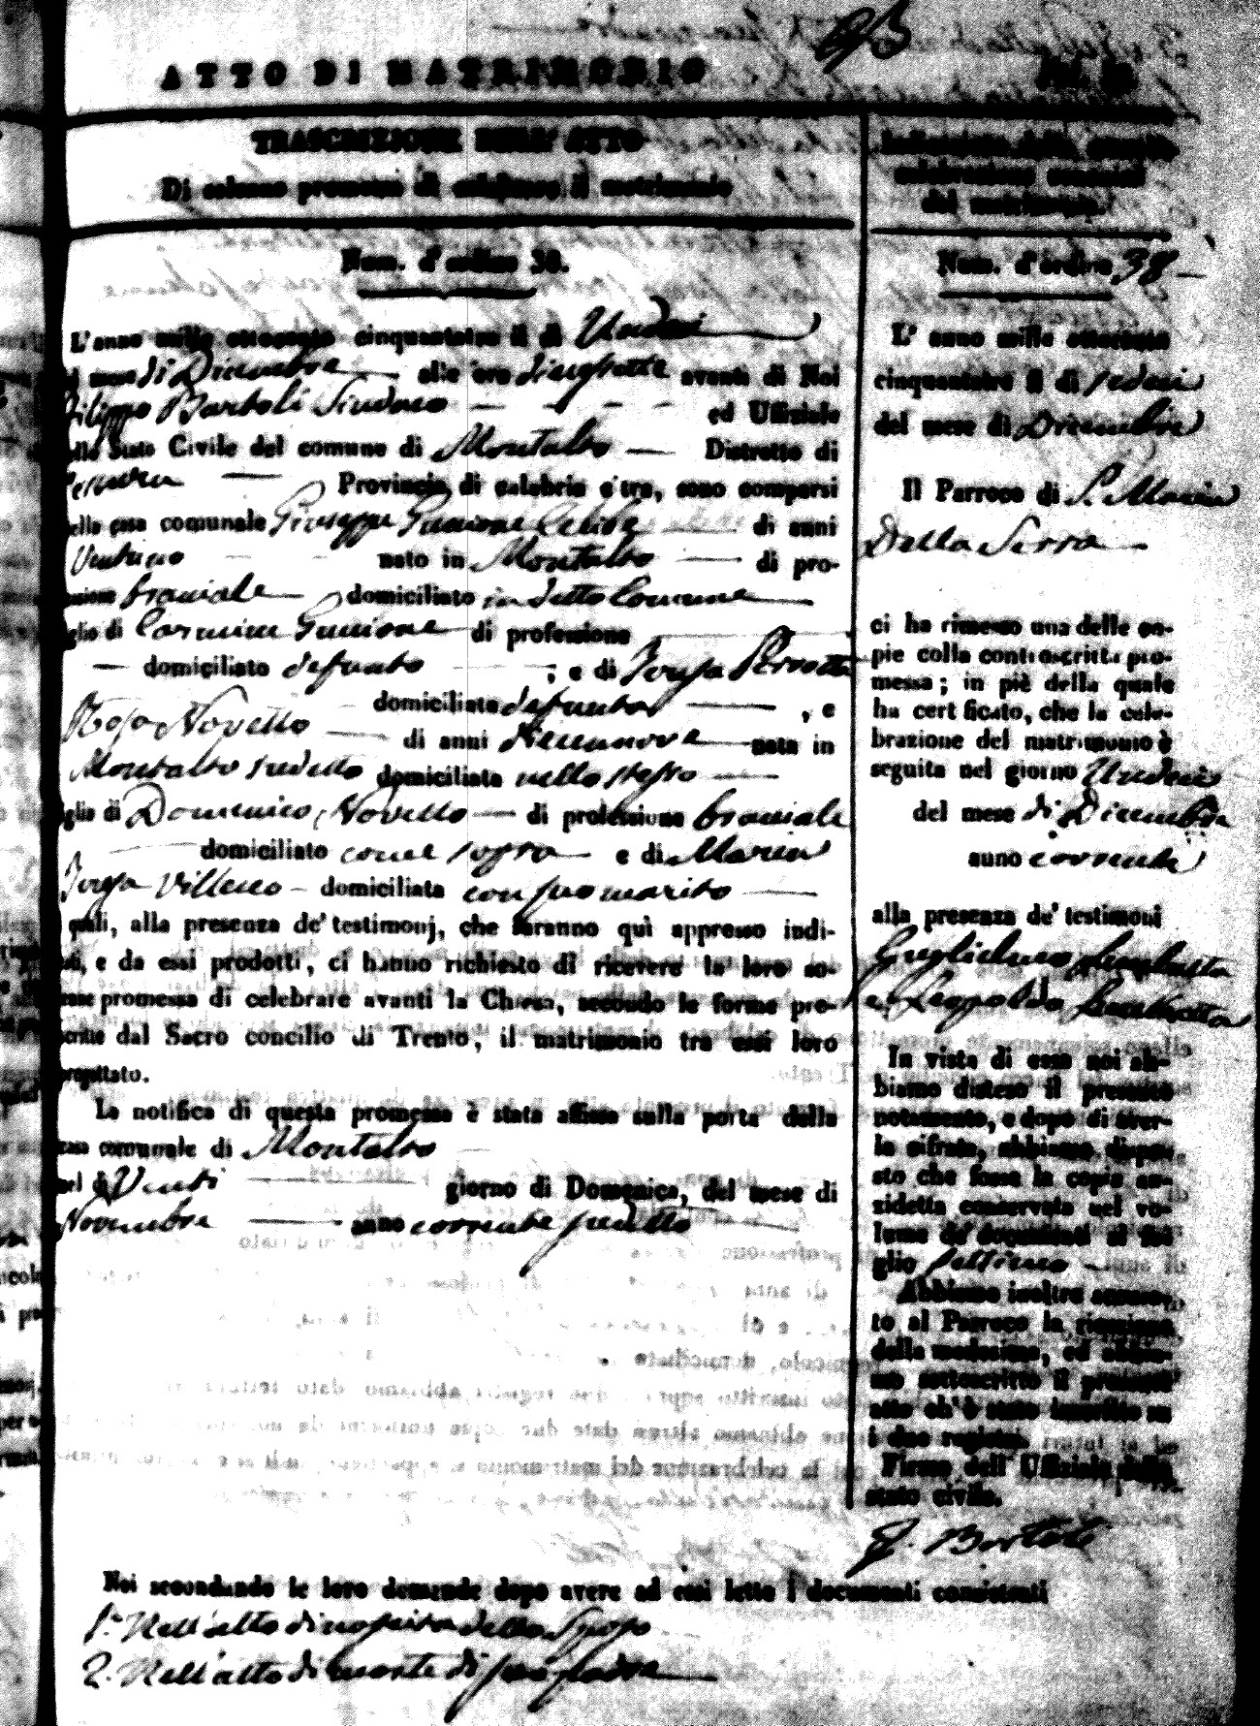 ATTO DI MATRIMONIO
TRASCRIZIONE DELL' ATTO
Di solenne promessa di celebrare il matrimonio
Num. d'ordine 38.
L'anno mille ottocento cinquantatre il di Undeci
mese di Dicembre alle ore diecisette avanti di Noi
Filippo Bartoli Sindaco ed Uffiziale
dello Stato Civile del comune di Montalto Distretto di
Cosenza Provincia di calabria citra, sono comparsi
nella casa comunale Giuseppe celibe di anni
nato in Montalto di pro-
fessione bracciale domiciliato in detto Comune
figlio di Carmine di professione
domiciliato defunto ; e di Teresa Perrotta
domiciliata defunta , e
Rosa Novello di anni diecinnove nata in
Montalto sudetto domiciliata nello stesso
figlia di Domenico Novello di professione bracciale
domiciliato come sopra e di Maria
Teresa domiciliata con suo marito
quali, alla presenza de' testimonj, che saranno quì appresso indi-
cati, e da essi prodotti, ci hanno richiesto di ricevere la loro so-
lenne promessa di celebrare avanti la Chiesa, secondo le forme pre-
scritte dal Sacro concilio di Trento, il matrimonio tra essi loro
progettato.
La notifica di questa promessa è stata affissa sulla porta della
casa comunale di Montalto
nel di Venti giorno di Domenica, del mese di
Novembre anno corrente sudetto
Noi secondando le loro domande dopo avere ad essi letto i documenti consistenti
1.° Nell'atto di nascita dello Sposo
2. Nell'atto di morte di suo padre
Indicazione della seguita
celebrazione canonica
del matrimonio.
Num. d'ordine 38
L' anno mille ottocento
cinquantatre il di sedeci
del mese di Dicembre
Il Parroco di S. Maria
Della Serra
ci ha rimesso una delle co-
pie colla controscritta pro-
messa; in piè della quale
ha certificato, che la cele-
brazione del matrimonio è
seguita nel giorno Undeci
del mese di Dicembre
anno corrente
alla presenza de' testimoni
Guglielmo
e Leopoldo
In vista di essa noi ab-
biamo disteso il presente
notamento, e dopo di aver-
lo cifrato, abbiamo dispo-
sto che fosse la copia an-
zidetta conservata nel vo-
lume de' documenti al fo-
glio settimo
Abbiamo inoltre accusa-
to al Parroco la ricezione
della medesima, ed abbia-
mo sottoscritto il presente
atto ch' è stato inscritto su
i due registri
Firma dell' Uffiziale dello
stato civile.
F. Bartoli